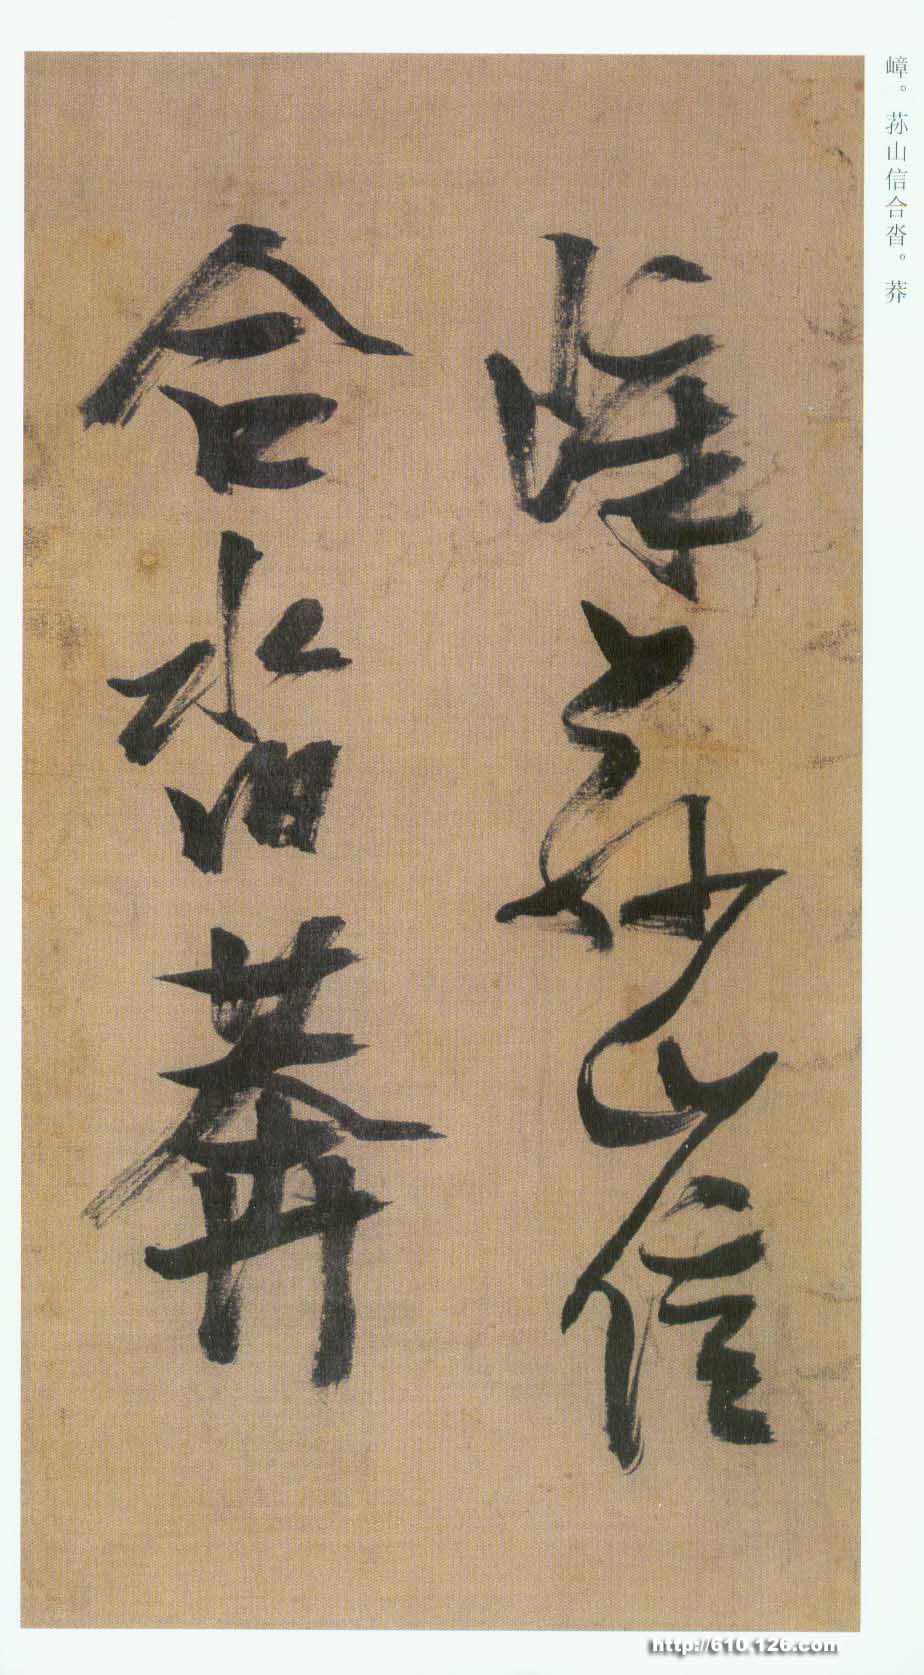 嶂。荪山信合沓。莽
嶂荪山信
合沓莽
http://610.126.com